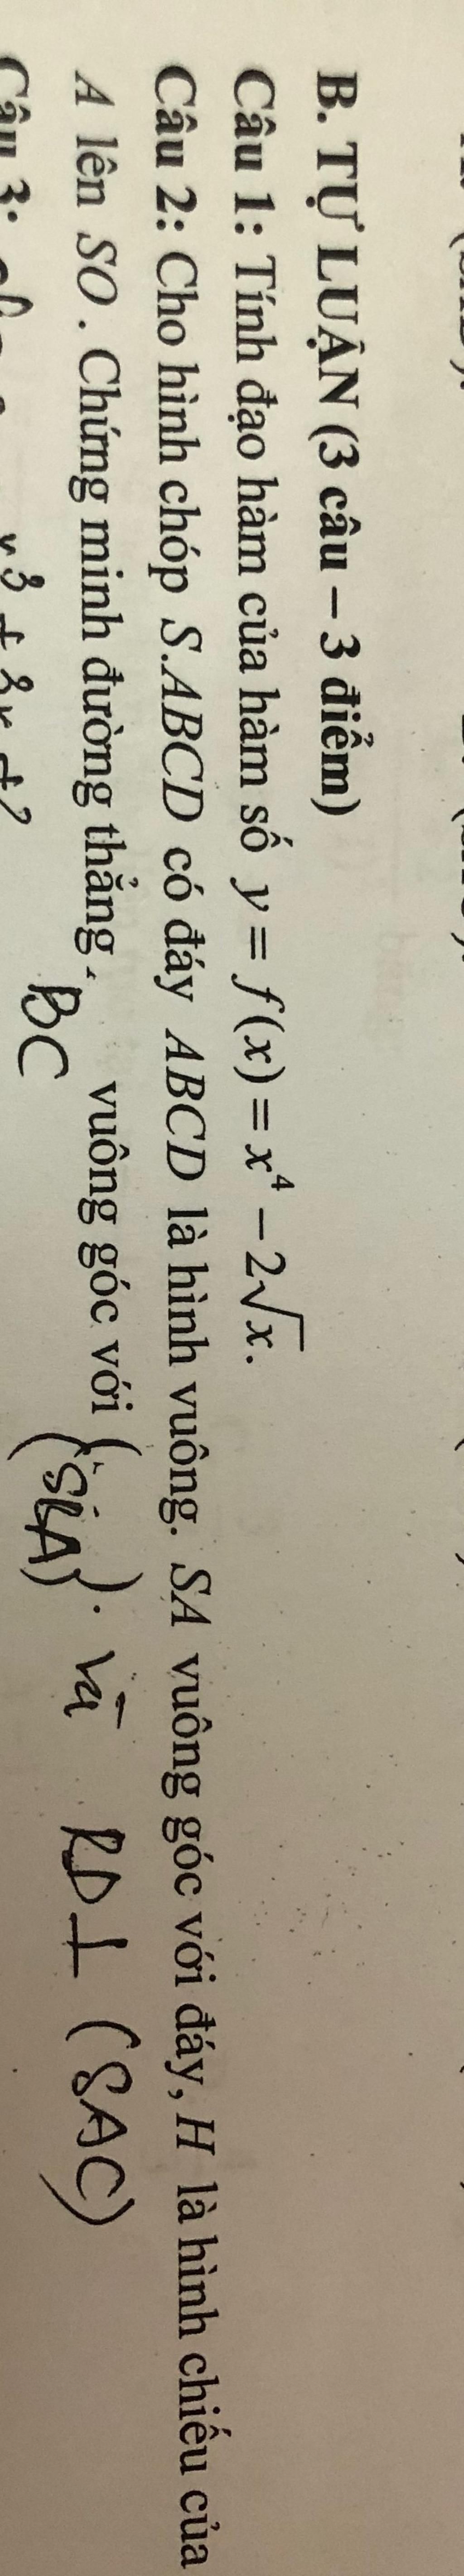 B. TỰ LUẬN (3 câu – 3 điểm)
Câu 1: Tính đạo hàm của hàm số y = f(x) = x⁴ − 2√x.
Câu 2: Cho hình chóp S.ABCD có đáy ABCD là hình vuông. SA vuông góc với đáy, H là hình chiếu của
A lên SO. Chứng minh đường thẳng BC vuông góc với (SBA). và BD ⊥ (SAC)
Câu 3: